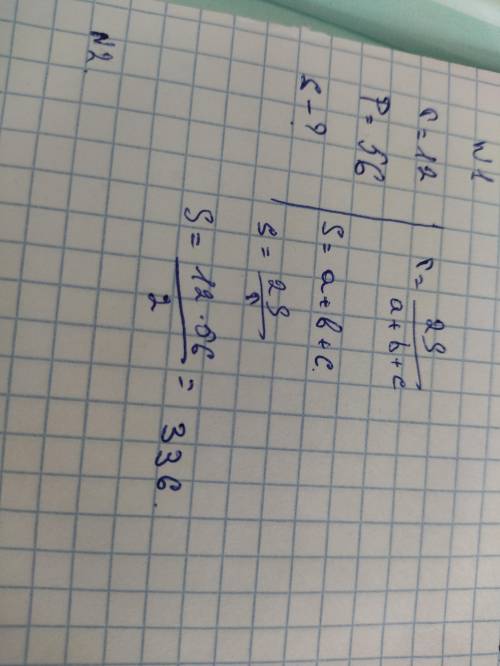 N1
r = 12
P = 56
S - ?
r = 2S / a + b + c
S = a + b + c.
S = 2S / r
S = 12 · 56 / 2 = 336.
N2.